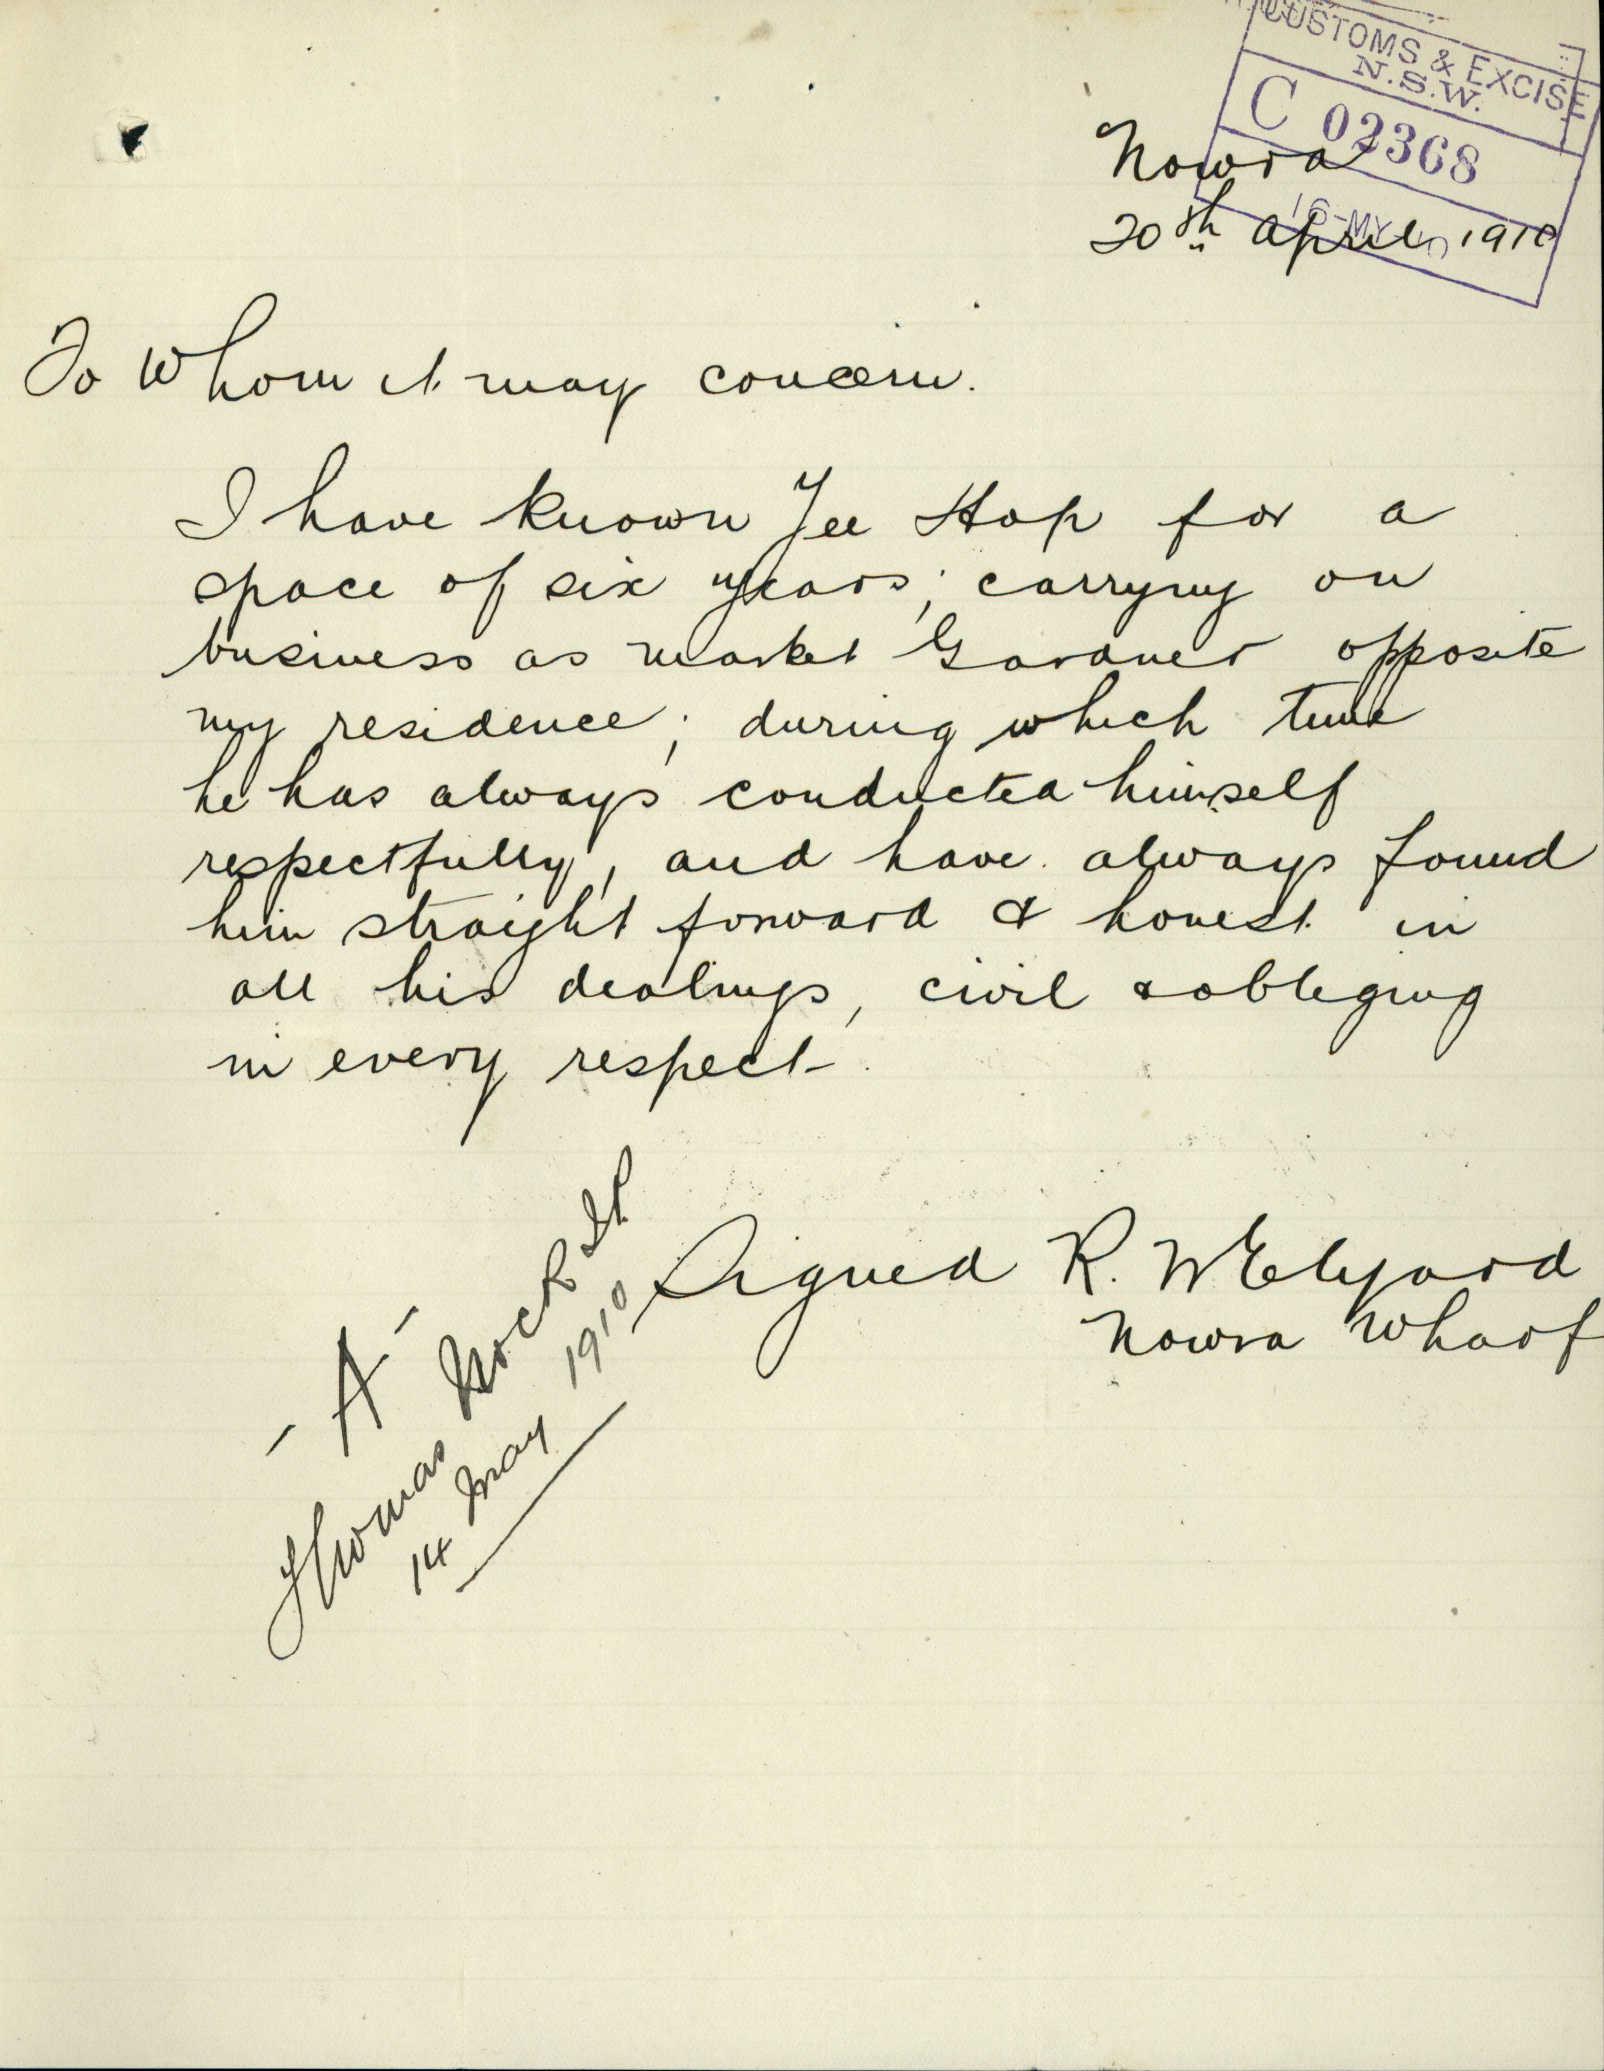 CUSTOMS & EXCISE
N.S.W.
C 02368
16 MY
Nowra
20th April 1910
To Whom it may concern.
I have known Yee Hop for a
space of six years; carrying on
business as market Gardner opposite
my residence; during which time
he has always conducted himself
respectfully, and have always found
him straight forward & honest in
all his dealings, civil & obleging
in every respect
Signed R. M Elyard
Nowra Wharf
- A -
Thomas
14 May 1910